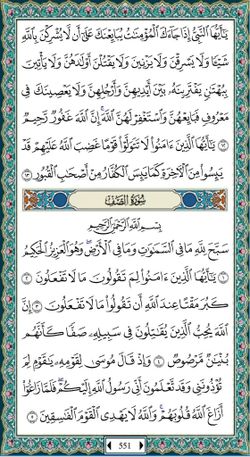 يَٰٓأَيُّهَا ٱلنَّبِيُّ إِذَا جَآءَكَ ٱلْمُؤْمِنَٰتُ يُبَايِعْنَكَ عَلَىٰٓ أَن لَّا يُشْرِكْنَ بِٱللَّهِ
شَيْـًٔا وَلَا يَسْرِقْنَ وَلَا يَزْنِينَ وَلَا يَقْتُلْنَ أَوْلَٰدَهُنَّ وَلَا يَأْتِينَ
بِبُهْتَٰنٍ يَفْتَرِينَهُۥ بَيْنَ أَيْدِيهِنَّ وَأَرْجُلِهِنَّ وَلَا يَعْصِينَكَ فِى
مَعْرُوفٍ فَبَايِعْهُنَّ وَٱسْتَغْفِرْ لَهُنَّ ٱللَّهَ إِنَّ ٱللَّهَ غَفُورٌ رَّحِيمٌ ١٢
يَٰٓأَيُّهَا ٱلَّذِينَ ءَامَنُوا۟ لَا تَتَوَلَّوْا۟ قَوْمًا غَضِبَ ٱللَّهُ عَلَيْهِمْ قَدْ
يَئِسُوا۟ مِنَ ٱلْـَٔاخِرَةِ كَمَا يَئِسَ ٱلْكُفَّارُ مِنْ أَصْحَٰبِ ٱلْقُبُورِ ١٣
سُورَةُ الصَّفِّ
بِسْمِ ٱللَّهِ ٱلرَّحْمَٰنِ ٱلرَّحِيمِ
سَبَّحَ لِلَّهِ مَا فِى ٱلسَّمَٰوَٰتِ وَمَا فِى ٱلْأَرْضِ وَهُوَ ٱلْعَزِيزُ ٱلْحَكِيمُ
١ يَٰٓأَيُّهَا ٱلَّذِينَ ءَامَنُوا۟ لِمَ تَقُولُونَ مَا لَا تَفْعَلُونَ ٢
كَبُرَ مَقْتًا عِندَ ٱللَّهِ أَن تَقُولُوا۟ مَا لَا تَفْعَلُونَ ٣ إِنَّ
ٱللَّهَ يُحِبُّ ٱلَّذِينَ يُقَٰتِلُونَ فِى سَبِيلِهِۦ صَفًّا كَأَنَّهُم
بُنْيَٰنٌ مَّرْصُوصٌ ٤ وَإِذْ قَالَ مُوسَىٰ لِقَوْمِهِۦ يَٰقَوْمِ لِمَ
تُؤْذُونَنِى وَقَد تَّعْلَمُونَ أَنِّى رَسُولُ ٱللَّهِ إِلَيْكُمْ فَلَمَّا زَاغُوٓا۟
أَزَاغَ ٱللَّهُ قُلُوبَهُمْ وَٱللَّهُ لَا يَهْدِى ٱلْقَوْمَ ٱلْفَٰسِقِينَ ٥
551